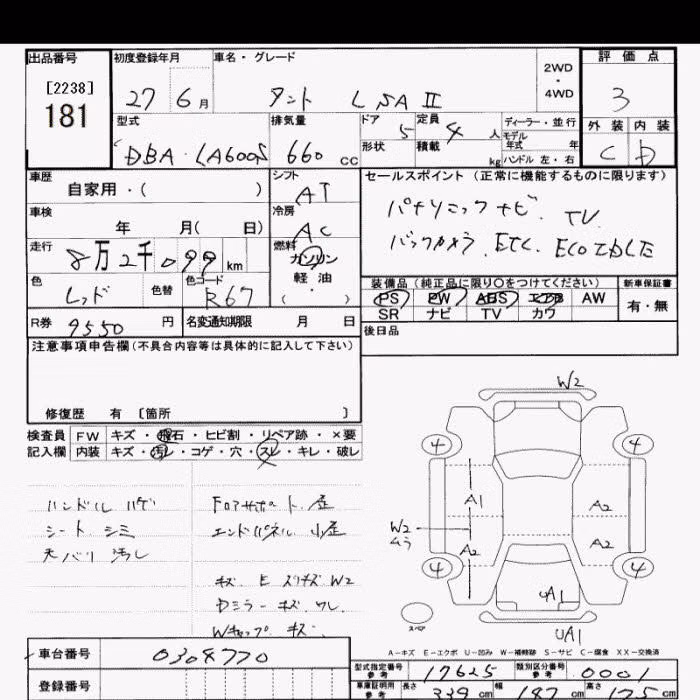 出品番号 初度登録年月 車名・グレード 2WD・4WD 評価点
[2238]
181
27 6月 タント L SAⅡ 3
型式 排気量 ドア 5 定員 4人 ディーラー・並行 外装 内装
モデル年式 年
DBA-LA600S 660cc 形状 積載 kg ハンドル 左・右 C D
車歴 自家用・( ) シフト AT セールスポイント(正常に機能するものに限ります)
車検 年 月( 日) 冷房 AC パナソニックナビ. TV
走行 8万2千099km 燃料 ガソリン 軽油 ( ・ ) バックカメラ. ETC. ECO IDLE
色 レッド 色替 色コード R67 装備品(純正品に限り○をつけてください) 新車保証書
PS PW ABS エアB AW 有・無
R券 9550円 名変通知期限 月 日 SR ナビ TV カワ
注意事項申告欄(不具合内容等は具体的に記入して下さい) 後日品
修復歴 有 [箇所 ]
検査員 FW キズ・飛石・ヒビ割・リペア跡・×要
記入欄 内装 キズ・汚レ・コゲ・穴・スレ・キレ・破レ
W2
4 4
ハンドル ハゲ
シート シミ
天バリ 汚レ
Fロアサポート 歪
エンドパネル 小歪
キズ E スリキズ W2
Dミラー キズ ワレ.
Wキャップ キズ
A1 A2
W2 ムラ A2 A2
4 4
UA1
スペア UA1
A-キズ E-エクボ U-凹み W-補修跡 S-サビ C-腐食 XX-交換済
車台番号 0304770 型式指定番号 参考 17625 類別区分番号 参考 0001
登録番号 車庫証明用 参考 長さ 339cm 幅 147cm 高さ 175cm